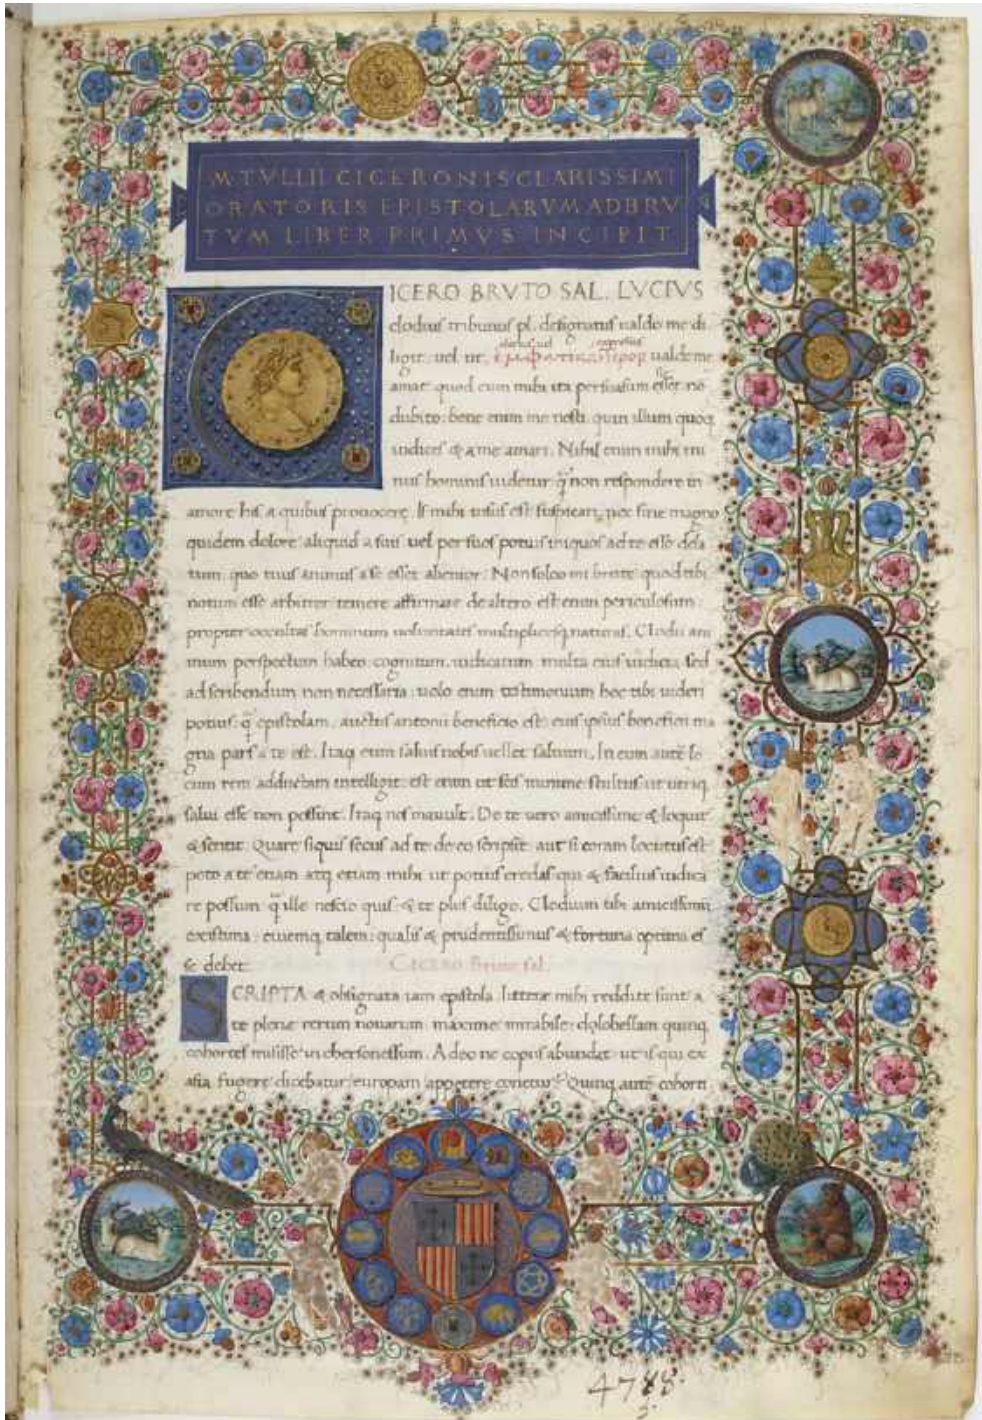 M. TVLLII CICERONIS CLARISSIMI
ORATORIS EPISTOLARVM AD BRV
TVM LIBER PRIMVS INCIPIT
ICERO BRVTO SAL. LVCIVS
clodius tribunus pl. designatus ualde me di
ligit: uel ut ualde me
amat quod cum mihi ita persuasum esset nō
dubito: bene enim me nosti: quin illum quoq
iudices & a me amari. Nihil enim mihi mi
nus hominis uidetur q̄ non respondere in
amore his a quibus prouocere. Is mihi uisus est suspicari, nec sine magno
quidem dolore aliquid a suis uel per suos potius iniquos ad te esse dela
tum: quo tuus animus a se esset alienior: Non soleo mi brute quod tibi
notum esse arbitror temere affirmare de altero est enim periculosum:
propter occultas hominum uoluntates multiplicesq naturas. Clodii ani
mum perspectum habeo: cognitum, iudicatum multa eius iudicia, sed
ad scribendum non necessaria: uolo enim testimonium hoc tibi uideri
potius: q̄ epistolam. auctus antonii beneficio est: eius ipsius beneficii ma
gna pars a te est. Itaq eum saluis nobis uellet saluum. In eum autē lo
cum rem adductam intelligit: est enim ut scis minime stultus ut utriq
salui esse non possint. Itaq nos mauult. De te uero amicissime & loquit
& sentit. Quare siquis secus ad te de eo scripsit aut si coram locutus est
peto a te etiam atq etiam mihi ut potius credas qui & facilius iudica
re possum q̄ ille nescio quis: & te plus diligo. Clodium tibi amicissimū
existima: ciuemq talem: qualis & prudentissimus & fortuna optima es
se debet. CICERO Bruto sal.
SCRIPTA & obsignata iam epistola litterae mihi reddite sunt a
te plene rerum nouarum maxime mirabile: dolobellam quinq
cohortes misisse in chersonessum. Adeo ne copiis abundat ut is qui ex
asia fugere dicebatur europam appetere conetur? Quinq autē cohorti